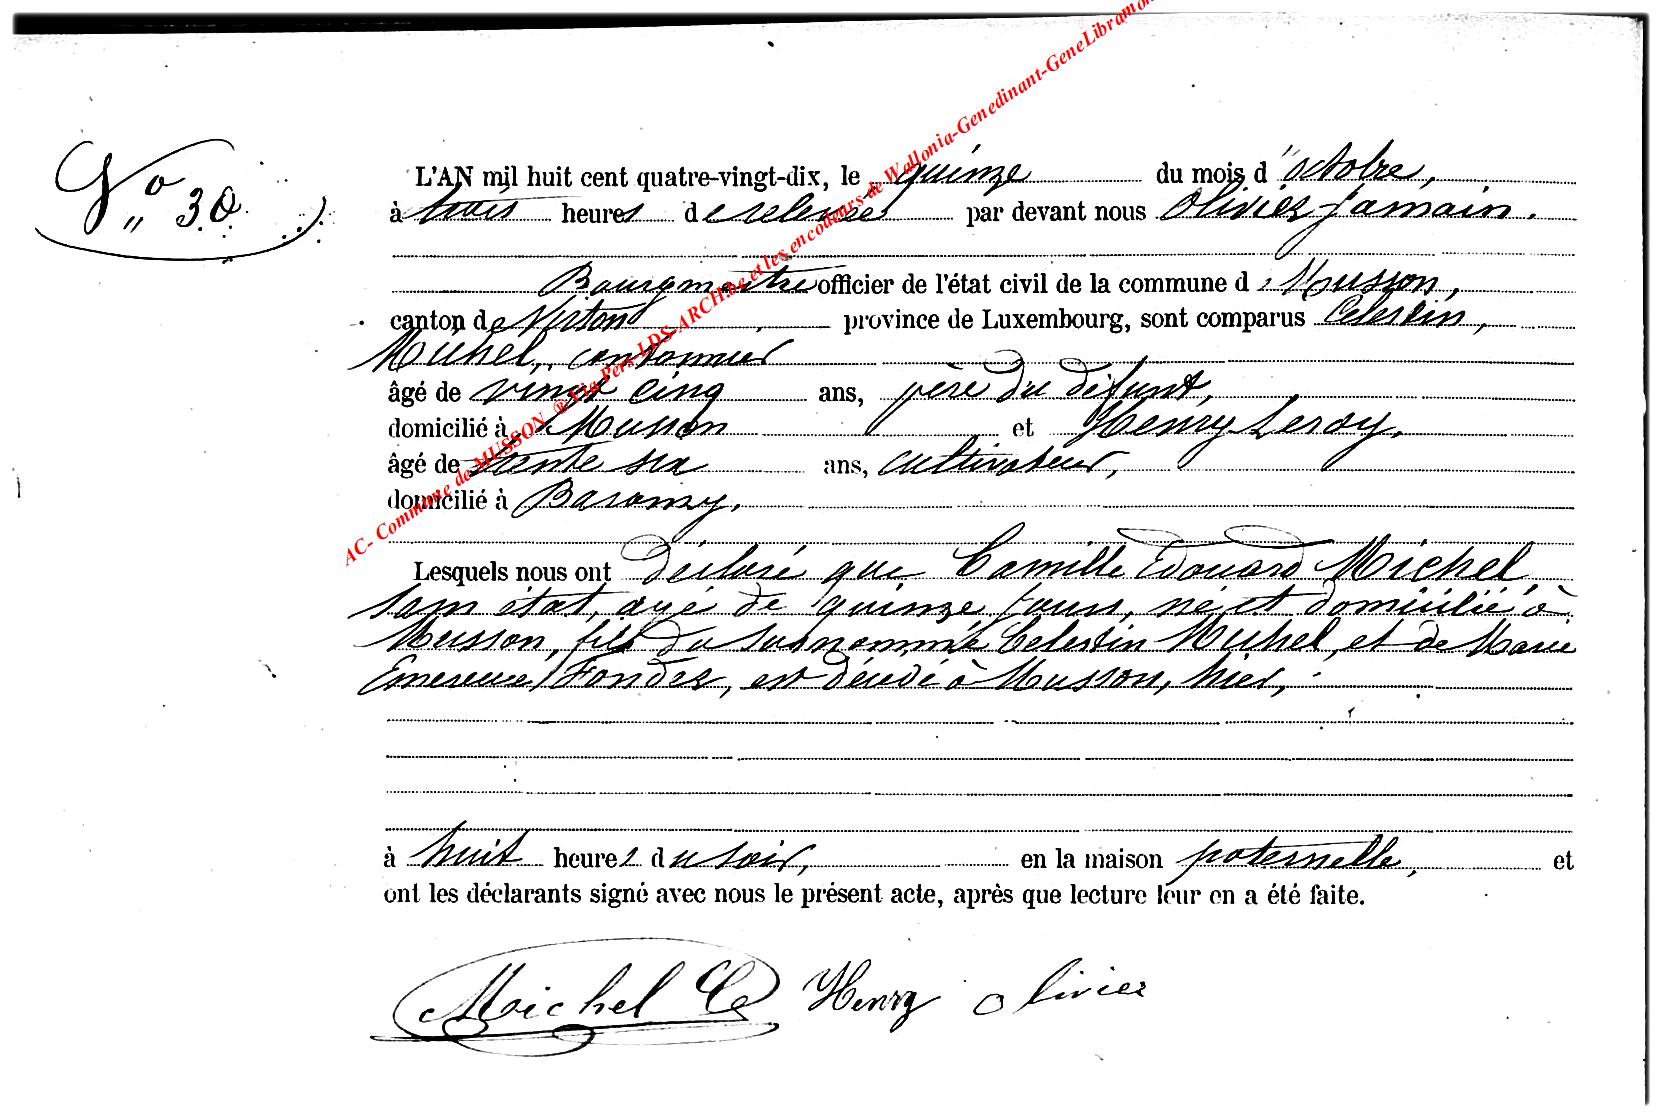 N° 30
L'AN mil huit cent quatre-vingt-dix, le quinze du mois d'octobre,
à trois heures de relevée par devant nous Olivier Jamain.
Bourgmestre officier de l'état civil de la commune de Musson,
canton de Virton province de Luxembourg, sont comparus Célestin,
Michel, cantonnier
âgé de vingt cinq ans, père du défunt,
domicilié à Musson et Henry Leroy.
âgé de trente six ans, cultivateur,
domicilié à Baranzy.
Lesquels nous ont déclaré que Camille Edouard Michel,
sans état, âgé de quinze jours, né et domicilié à
Musson, fils du susnommé Célestin Michel, et de Marie
Emerence Fonder, est décédé à Musson, hier,
à huit heures du soir, en la maison paternelle, et
ont les déclarants signé avec nous le présent acte, après que lecture leur en a été faite.
Michel Ce Henry Olivier
AC- Commune de MUSSON ® Via Pers-LDS-ARCH.be et les encodeurs de Wallonia-Genedinant-GeneLibramon